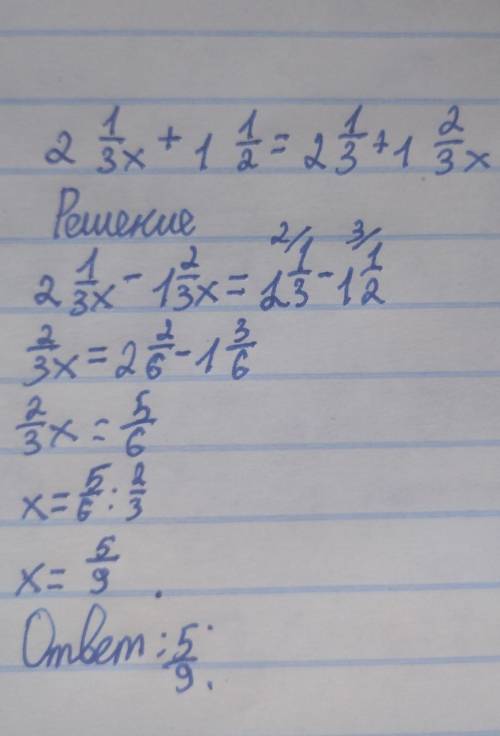 2 1/3x + 1 1/2 = 2 1/3 + 1 2/3x
Решение
2 1/3x - 1 2/3x = 2 2/ 1/3 - 1 3/ 1/2
2/3x = 2 2/6 - 1 3/6
2/3x = 5/6
x = 5/6 : 2/3
x = 5/9 .
Ответ: 5/9.